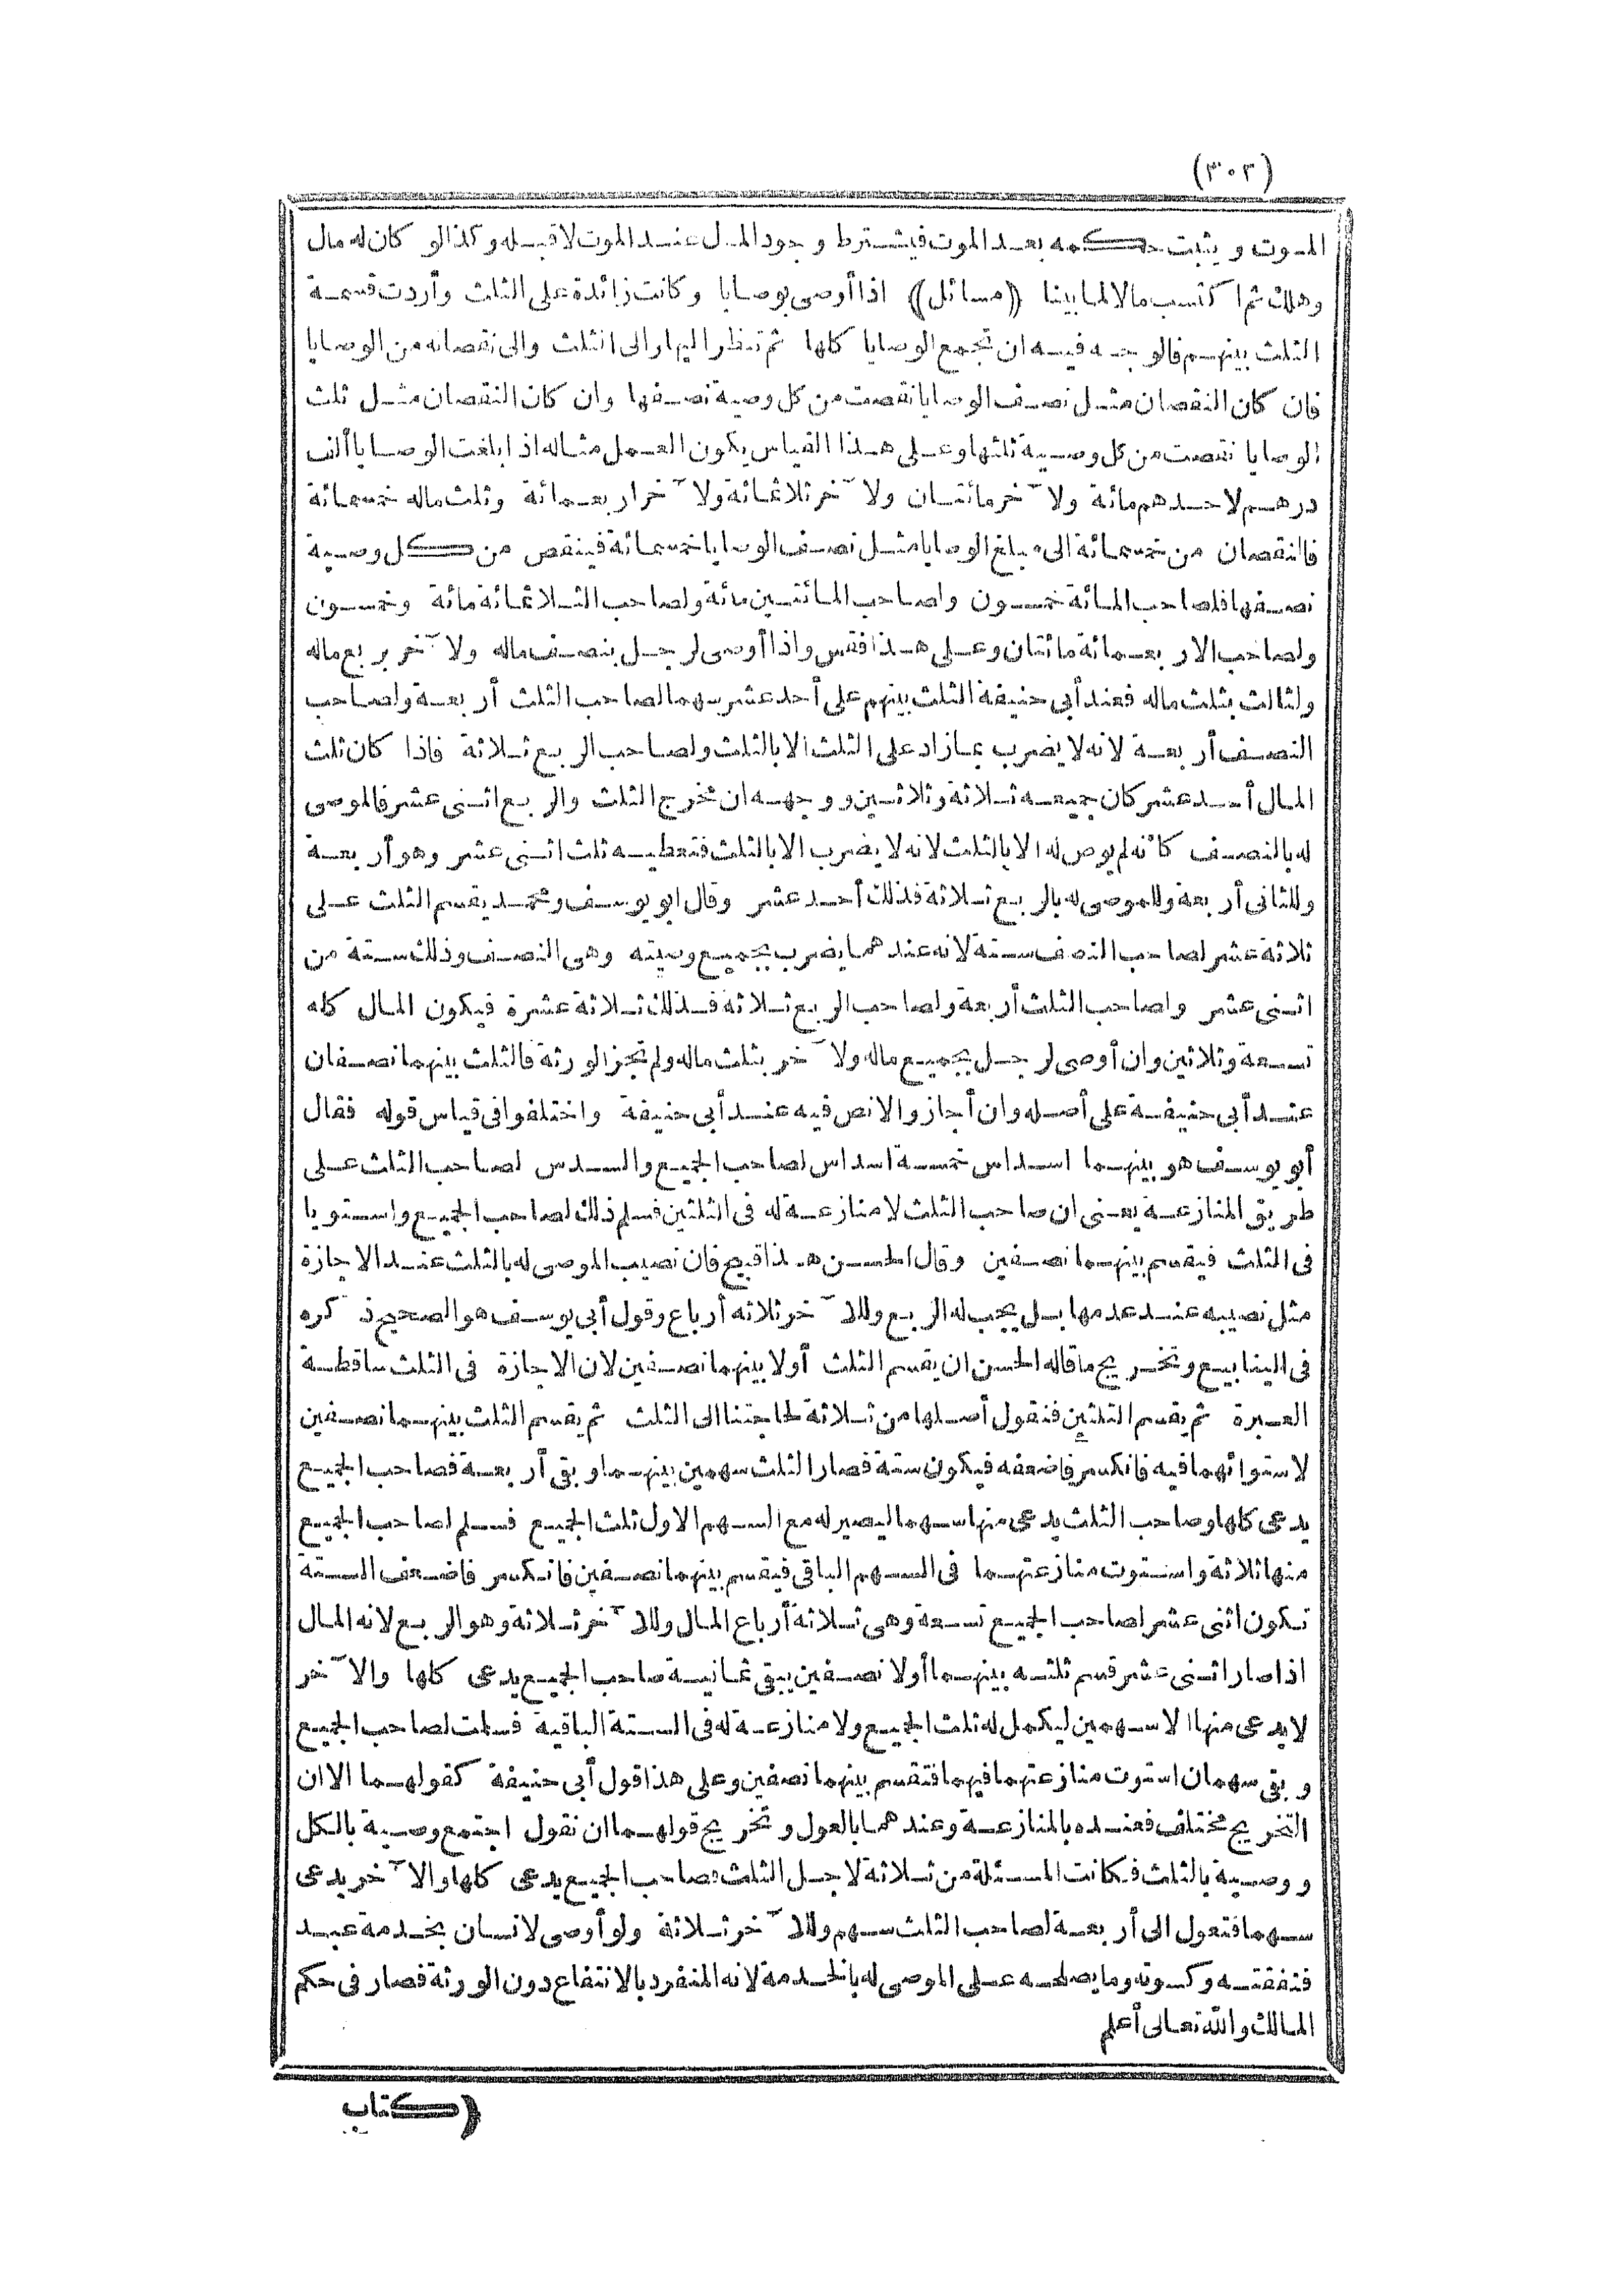 (٣٠٢)
الموت ويثبت حكمه بعد الموت فيشترط وجود المال عند الموت لا قبله وكذا لو كان له مال
وهلك ثم اكتسب مالا لما بينا ((مسائل)) اذا أوصى بوصايا وكانت زائدة على الثلث وأردت قسمة
الثلث بينهم فالوجه فيه ان تجمع الوصايا كلها ثم تنظر اليها والى الثلث والى نقصانه من الوصايا
فان كان النقصان مثل نصف الوصايا نقصت من كل وصية نصفها وان كان النقصان مثل ثلث
الوصايا نقصت من كل وصية ثلثها وعلى هذا القياس يكون العمل مثاله اذا بلغت الوصايا ألف
درهم لاحدهم مائة ولآخر مائتان ولآخر ثلاثمائة ولآخر اربعمائة وثلث ماله خمسمائة
فالنقصان من خمسمائة الى مبلغ الوصايا مثل نصف الوصايا خمسمائة فينقص من كل وصية
نصفها فلصاحب المائة خمسون ولصاحب المائتين مائة ولصاحب الثلاثمائة مائة وخمسون
ولصاحب الاربعمائة مائتان وعلى هذا فقس واذا أوصى لرجل بنصف ماله ولآخر بربع ماله
ولثالث بثلث ماله فعند أبى حنيفة الثلث بينهم على أحد عشر سهما لصاحب الثلث أربعة ولصاحب
النصف أربعة لانه لا يضرب بما زاد على الثلث الا بالثلث ولصاحب الربع ثلاثة فاذا كان ثلث
المال أحد عشر كان جميعه ثلاثة وثلاثين ووجهه ان مخرج الثلث والربع اثنى عشر فالموصى
له بالنصف كأنه لم يوص له الا بالثلث لانه لا يضرب الا بالثلث فتعطيه ثلث اثنى عشر وهو أربعة
وللثانى أربعة وللموصى له بالربع ثلاثة فذلك أحد عشر وقال ابو يوسف ومحمد يقسم الثلث على
ثلاثة عشر لصاحب النصف ستة لانه عندهما يضرب بجميع وصيته وهى النصف وذلك ستة من
اثنى عشر ولصاحب الثلث أربعة ولصاحب الربع ثلاثة فذلك ثلاثة عشرة فيكون المال كله
تسعة وثلاثين وان أوصى لرجل بجميع ماله ولآخر بثلث ماله ولم تجز الورثة فالثلث بينهما نصفان
عند أبى حنيفة على أصله وان أجازوا لا نص فيه عند أبى حنيفة واختلفوا فى قياس قوله فقال
أبو يوسف هو بينهما اسداس خمسة اسداس لصاحب الجميع والسدس لصاحب الثلث على
طريق المنازعة يعنى ان صاحب الثلث لا منازعة له فى الثلثين فسلم ذلك لصاحب الجميع واستويا
فى الثلث فيقسم بينهما نصفين وقال الحسن هذا قبيح فان نصيب الموصى له بالثلث عند الاجازة
مثل نصيبه عند عدمها بل يجب له الربع وللآخر ثلاثه أرباع وقول أبى يوسف هو الصحيح ذكره
فى الينابيع وتخريج ما قاله الحسن ان يقسم الثلث أولا بينهما نصفين لان الاجازة فى الثلث ساقطة
العبرة ثم يقسم الثلثين فنقول أصلها من ثلاثة لحاجتنا الى الثلث ثم يقسم الثلث بينهما نصفين
لاستوائهما فيه فانكسر فاضعفه فيكون ستة فصار الثلث سهمين بينهما وبقى أربعة فصاحب الجميع
يدعى كلها وصاحب الثلث يدعى منها سهما ليصير له مع السهم الاول ثلث الجميع فسلم لصاحب الجميع
منها ثلاثة واستوت منازعتهما فى السهم الباقى فيقسم بينهما نصفين فانكسر فاضعف الستة
تكون اثنى عشر لصاحب الجميع تسعة وهى ثلاثة أرباع المال وللآخر ثلاثة وهو الربع لانه المال
اذا صار اثنى عشر قسم ثلثه بينهما أولا نصفين يبقى ثمانية صاحب الجميع يدعى كلها والآخر
لا يدعى منها الا سهمين ليكمل له ثلث الجميع ولا منازعة له فى الستة الباقية فسلمت لصاحب الجميع
وبقى سهمان استوت منازعتهما فيهما فتقسم بينهما نصفين وعلى هذا قول أبى حنيفة كقولهما الا ان
التخريج مختلف فعنده بالمنازعة وعندهما بالعول وتخريج قولهما ان نقول اجتمع وصية بالكل
ووصية بالثلث فكانت المسئلة من ثلاثة لاجل الثلث فصاحب الجميع يدعى كلها والآخر يدعى
سهما فتعول الى أربعة لصاحب الثلث سهم وللآخر ثلاثة ولو أوصى لانسان بخدمة عبد
فنفقته وكسوته وما يصلحه على الموصى له بالخدمة لانه المنفرد بالانتفاع دون الورثة فصار فى حكم
المالك والله تعالى أعلم
(كتاب